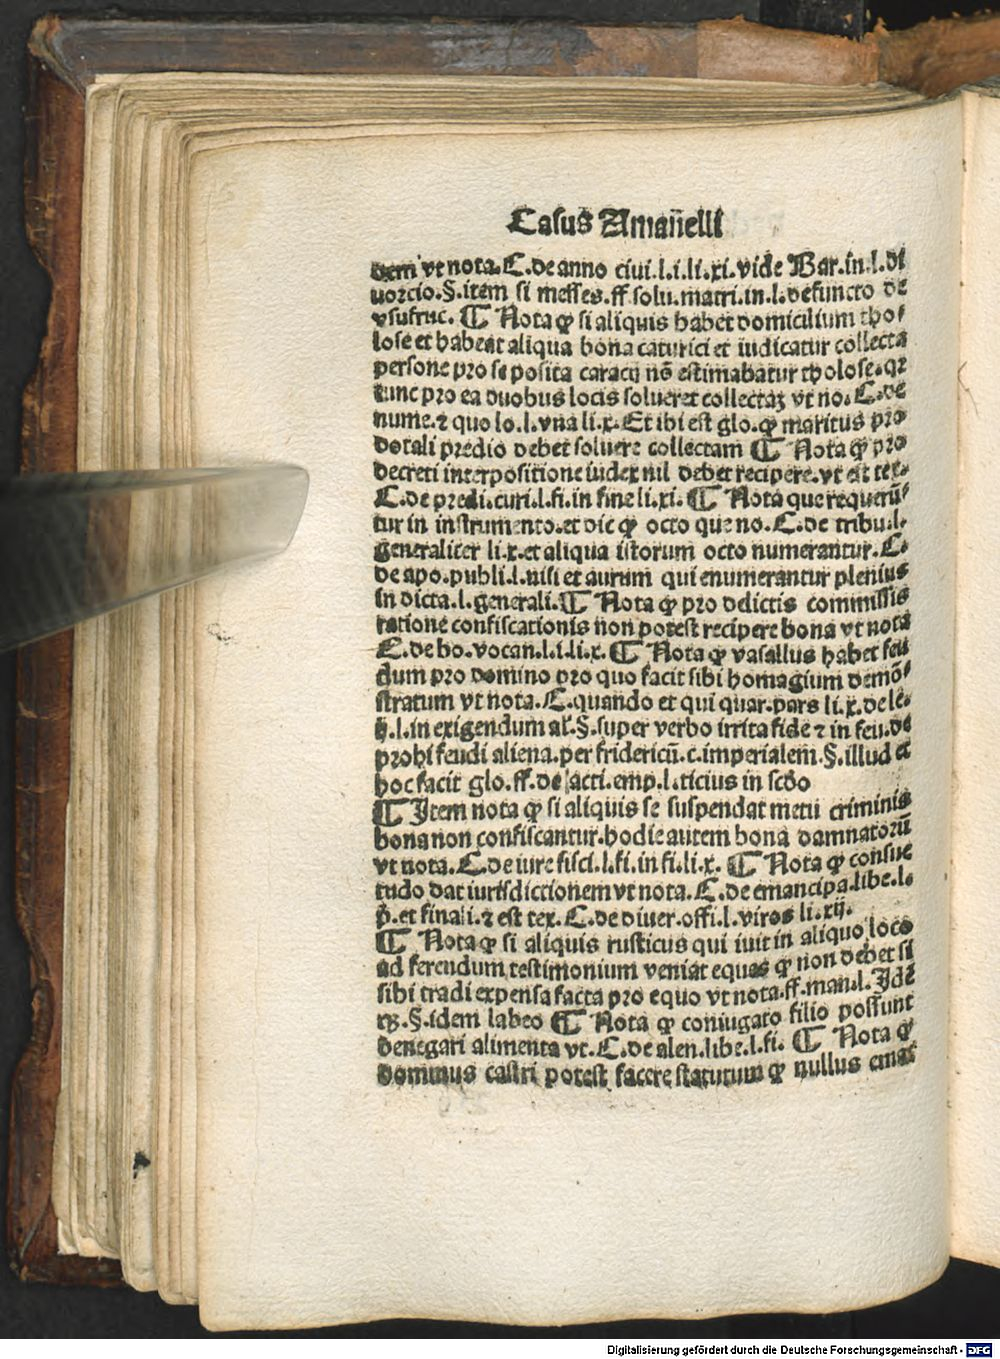 Casus Aman̄elli
dem vt nota. C. de anno ciui. l. i. li. xi. vide Bar. in. l. di
uorcio. §. item si messes. ff solu. matri. in. l. defuncto de
vsufruc. ¶ Nota ꝙ si aliquis habet domicilium tho-
lose et habeat aliqua bona caturici et iudicatur collecta
persone pro se posita caracij nō estimabatur tholose. qr
tunc pro ea duobus locis solueret collectaꝫ vt no. C. de
nume. ⁊ quo lo. l. vna li. x. Et ibi est glo. ꝙ maritus pro
dotali predio debet soluere collectam ¶ Nota ꝙ pro
decreti interpositione iudex nil debet recipere. vt est tex.
C. de predi. curi. l. fi. in fine li. xi. ¶ Nota que requerū-
tur in instrumento. et dic ꝙ octo que no. C. de tribu. l.
generaliter li. x. et aliqua istorum octo numerantur. C.
de apo. publi. l. nisi et aurum qui enumerantur plenius
in dicta. l. generali. ¶ Nota ꝙ pro delictis commissis
ratione confiscationis non potest recipere bona vt nota
C. de bo. vocan. l. i. li. x. ¶ Nota ꝙ vasallus habet feu
dum pro domino pro quo facit sibi homagium demō-
stratum vt nota. C. quando et qui quar. pars li. x. de le-
. l. in exigendum al. §. super verbo irrita fide ⁊ in feu. de
prohi feudi aliena. per fridericū. c. imperialem. §. illud et
hoc facit glo. ff. de acti. emp. l. ticius in scdo
¶ Item nota ꝙ si aliquis se suspendat metu criminis
bona non confiscantur. hodie autem bona damnatorū
vt nota. C. de iure fisci. l. fi. in fi. li. x. ¶ Nota ꝙ consue
tudo dat iurisdictionem vt nota. C. de emancipa. libe. l.
p̄. et finali. ⁊ est tex. C. de diuer. offi. l. viros li. xij.
¶ Nota ꝙ si aliquis rusticus qui iuit in aliquo loco
ad ferendum testimonium veniat eques ꝙ non debet si
sibi tradi expensa facta pro equo vt nota. ff. man. l. Idē
. §. idem labeo ¶ Nota ꝙ coniugato filio possunt
denegari alimenta vt. C. de alen. libe. l. fi. ¶ Nota ꝙ
dominus castri potest facere statutum ꝙ nullus emat
Digitalisierung gefördert durch die Deutsche Forschungsgemeinschaft - DFG